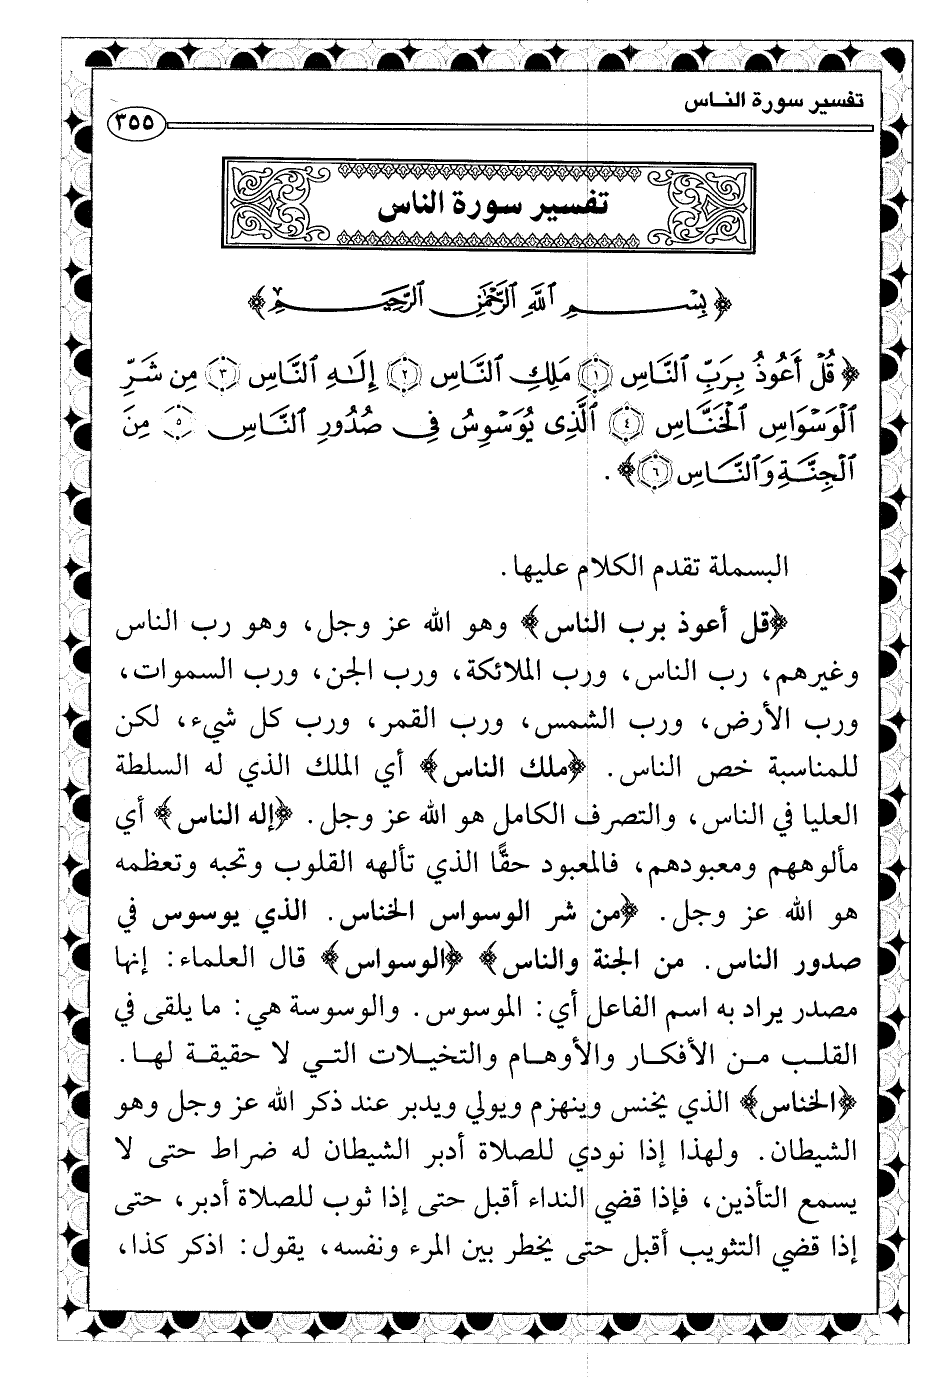 تفسير سورة النـاس
٣٥٥
تفسير سورة الناس
﴿بِسْمِ ٱللَّهِ ٱلرَّحْمَٰنِ ٱلرَّحِيمِ﴾
﴿قُلْ أَعُوذُ بِرَبِّ ٱلنَّاسِ ١ مَلِكِ ٱلنَّاسِ ٢ إِلَٰهِ ٱلنَّاسِ ٣ مِن شَرِّ
ٱلْوَسْوَاسِ ٱلْخَنَّاسِ ٤ ٱلَّذِى يُوَسْوِسُ فِى صُدُورِ ٱلنَّاسِ ٥ مِنَ
ٱلْجِنَّةِ وَٱلنَّاسِ ٦﴾.
البسملة تقدم الكلام عليها.
﴿قل أعوذ برب الناس﴾ وهو الله عز وجل، وهو رب الناس
وغيرهم، رب الناس، ورب الملائكة، ورب الجن، ورب السموات،
ورب الأرض، ورب الشمس، ورب القمر، ورب كل شيء، لكن
للمناسبة خص الناس. ﴿ملك الناس﴾ أي الملك الذي له السلطة
العليا في الناس، والتصرف الكامل هو الله عز وجل. ﴿إله الناس﴾ أي
مألوههم ومعبودهم، فالمعبود حقًّا الذي تألهه القلوب وتحبه وتعظمه
هو الله عز وجل. ﴿من شر الوسواس الخناس. الذي يوسوس في
صدور الناس. من الجنة والناس﴾ ﴿الوسواس﴾ قال العلماء: إنها
مصدر يراد به اسم الفاعل أي: الموسوس. والوسوسة هي: ما يلقى في
القلب مـن الأفكـار والأوهـام والتخيـلات التـي لا حقيقـة لهـا.
﴿الخناس﴾ الذي يخنس وينهزم ويولي ويدبر عند ذكر الله عز وجل وهو
الشيطان. ولهذا إذا نودي للصلاة أدبر الشيطان له ضراط حتى لا
يسمع التأذين، فإذا قضي النداء أقبل حتى إذا ثوب للصلاة أدبر، حتى
إذا قضي التثويب أقبل حتى يخطر بين المرء ونفسه، يقول: اذكر كذا،